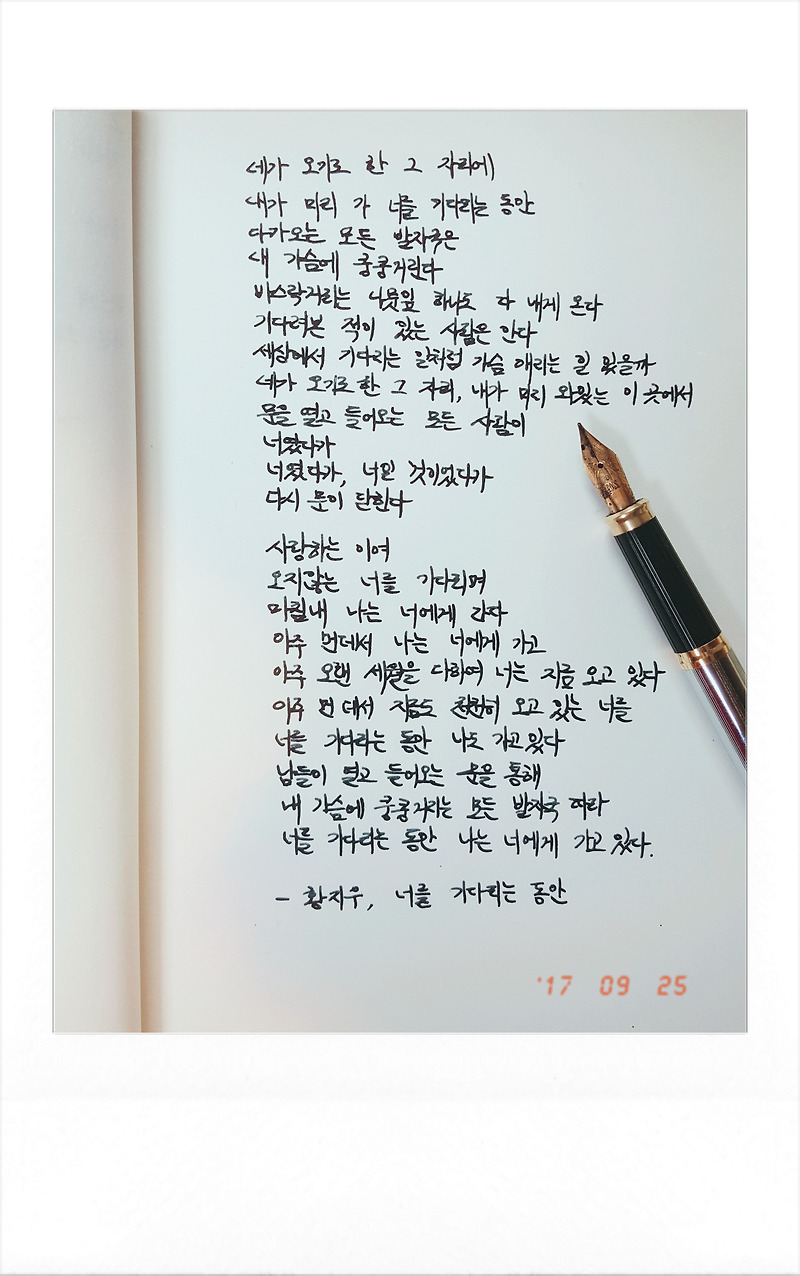 네가 오기로 한 그 자리에
내가 미리 가 너를 기다리는 동안
다가오는 모든 발자국은
내 가슴에 쿵쿵거린다
바스락거리는 나뭇잎 하나도 다 내게 온다
기다려본 적이 있는 사람은 안다
세상에서 기다리는 일처럼 가슴 애리는 일 있을까
네가 오기로 한 그 자리, 내가 미리 와있는 이 곳에서
문을 열고 들어오는 모든 사람이
너였다가
너였다가, 너일 것이었다가
다시 문이 닫힌다
사랑하는 이여
오지않는 너를 기다리며
마침내 나는 너에게 간다
아주 먼데서 나는 너에게 가고
아주 오랜 세월을 다하여 너는 지금 오고 있다
아주 먼 데서 지금도 천천히 오고 있는 너를
너를 기다리는 동안 나도 가고 있다
남들이 열고 들어오는 문을 통해
내 가슴에 쿵쿵거리는 모든 발자국 따라
너를 기다리는 동안 나는 너에게 가고 있다.
- 황지우, 너를 기다리는 동안
'17 09 25